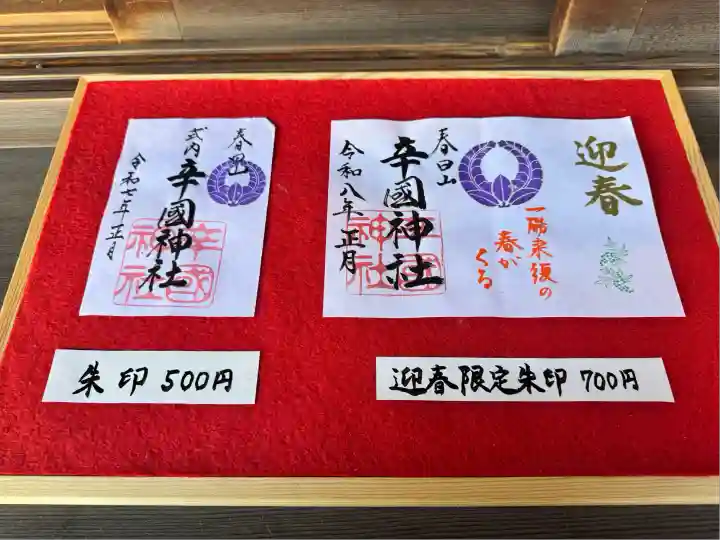 春日山
式内 辛國神社
令和七年正月
辛國神社
朱印 500円
迎春
一陽来復の
春が
くる
春日山
辛國神社
令和八年正月
辛國神社
迎春限定朱印 700円